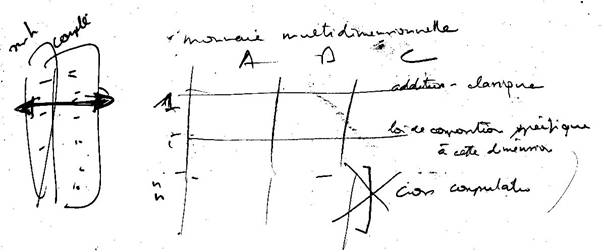 couple
monnaie multidimensionnelle
A B C
1 addition - classique
i loi de composition spécifique
à cette dimension
n